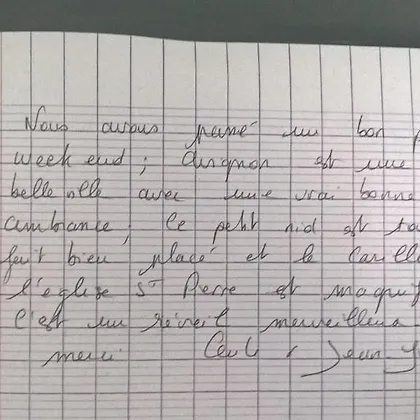 Nous avons passé un bon p
week end ; Avignon est une
belle ville avec une vrai bonne
ambiance ; ce petit nid est to
fait bien placé et le carill
l'église St Pierre est magnif
C'est un réveil merveilleux
merci